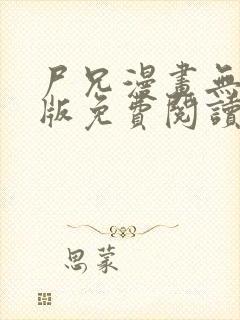 尸兄漫畫無
版免費閱讀
思蒙